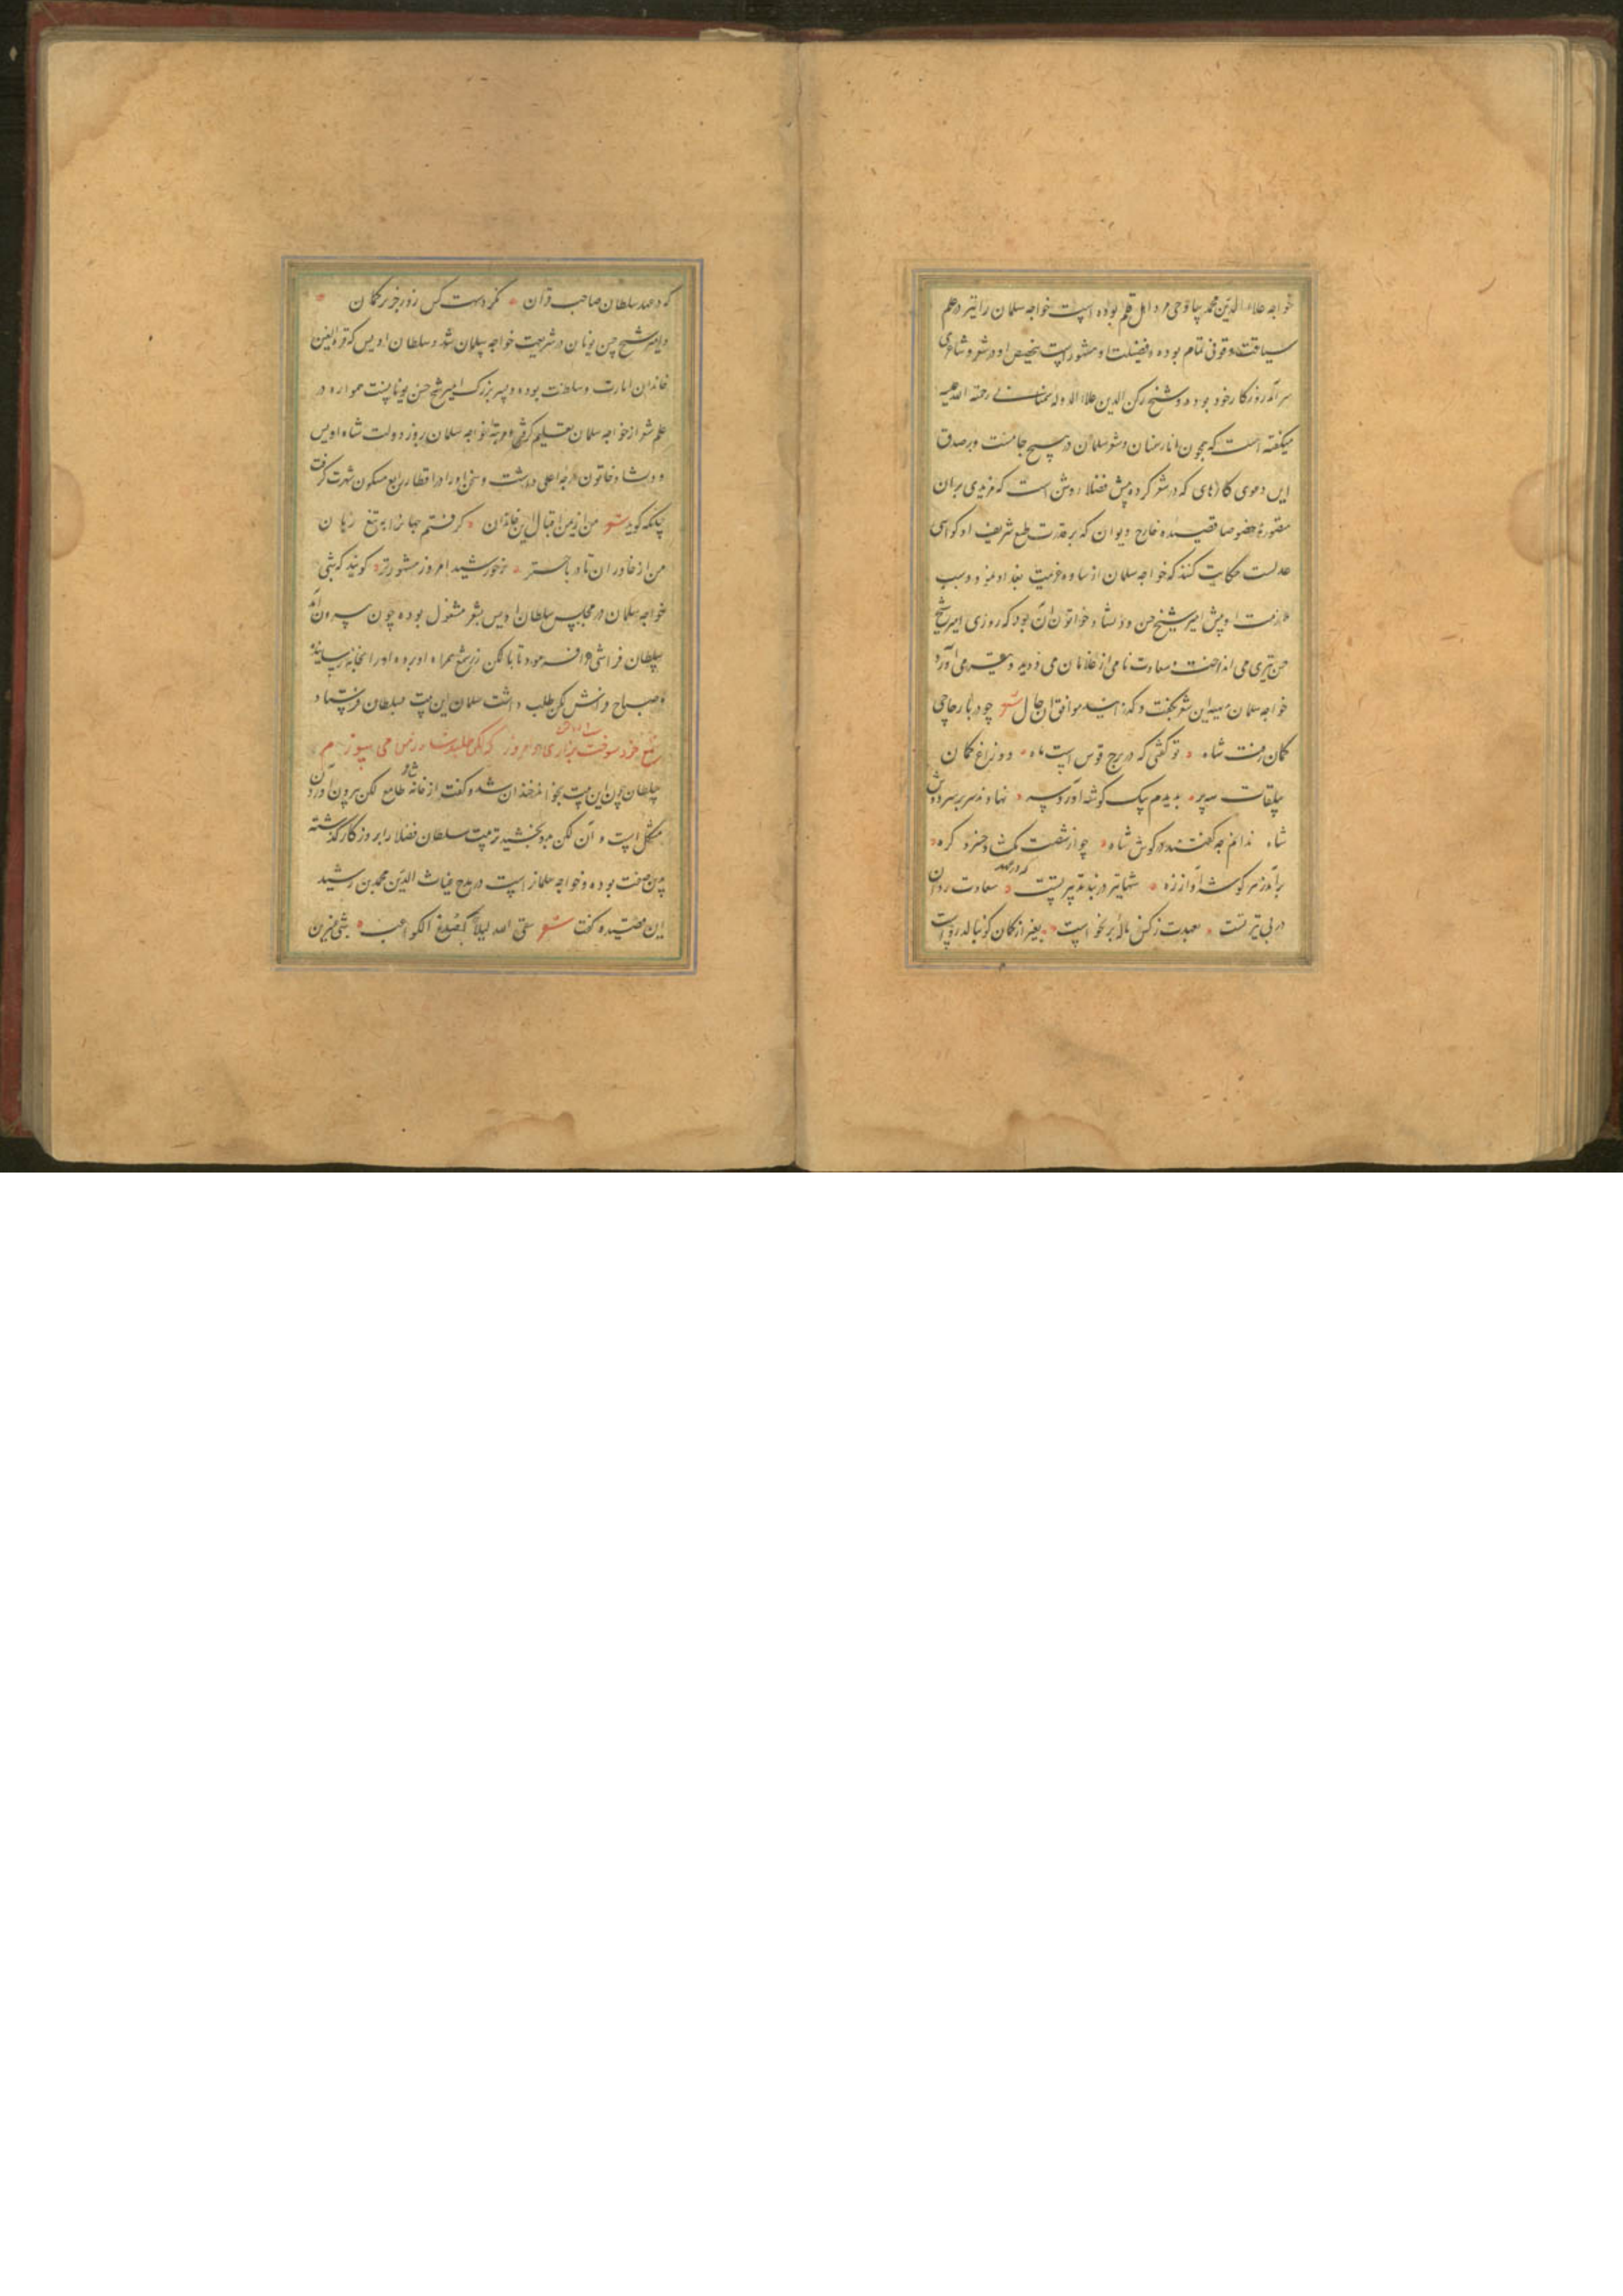 خواجه علاء الدین محمد ساوجی مرد اهل قلم بوده است خواجه سلمان را نیز در علم
سیاقت وقوفی تمام بوده و فضیلت او مشهور است بتخصیص او در شعر و شاعری
سر آمد روزکار خود بوده و شیخ رکن الدین علاء الدوله سمنانی رحمة الله علیه
میکفته است که همچون انار سمنان و شعر سلمان در هیچ جا نیست و بر صدق
این دعوی کارهای که در شعر کرده پیش فضلا روشن است که مزیدی بران
متصور نه خصوصا قصیده خارج دیوان که بر قدرت طبع شریف او کواهی
عدلست حکایت کنند که خواجه سلمان از ساوه عزیمت بغداد نمود و سبب
ملازمت او پیش امیر شیخ حسن و دلشاد خواتون آن بود که روزی امیر شیخ
حسن تیری می انداخت و سعادت نامی از غلامان می دوید و تیر می آورد
خواجه سلمان بدیهه این شعر بکفت و کذرانید موافق آن حال شعر چو در بار چاچی
کمان رفت شاه تو کفتی که در برج قوس است ماه دو زاغ کمان
با عقاب سه پر بدیدم بیک کوشه آورده سر نهادند سر بر سر دوش
شاه ندانم چه کفتند در کوش شاه چو از شصت بکشاد خسرو کره
بر آمد ز هر کوشه آواز زه شها تیر در بند تدبیر تست سعادت روان
در پی تیر تست بعهدت ز کس ناله بر نخواست بغیر از کمان کو بنالد رواست
که در عهد
که در عهد سلطان صاحب قران نکردست کس زور جز بر کمان
و امیر شیخ حسن نویان در تربیت خواجه سلمان شد و سلطان اویس که قرة العین
خاندان امارت و سلطنت بوده و پسر بزرک امیر شیخ حسن نویانست همواره در
علم شعر از خواجه سلمان تعلیم کرفتی و مرتبه خواجه سلمان روز دولت شاه اویس
و دلشاد خاتون درجه اعلی داشت و سخن او را در اقطار ربع مسکون شهرت کرفت
چنانکه کوید شعر من از یمن اقبال این خاندان کرفتم جهانرا به تیغ زبان
من از خاوران تا در باختر ز خورشیدم امروز مشهورتر کویند که شبی
خواجه سلمان در مجلس سلطان اویس بشعر مشغول بوده چون بیرون آمد
سلطان فراشی را فرمود تا با لکن زر شمع همراه او برده او را بخانه رسانید
و صباح فراش لکن طلب داشت سلمان این بیت بسلطان فرستاد
شمع خود سوخت بزاری شب دوش و امروز که لکن طلبد شاه ز من می سوزم
سلطان چون این بیت بخواند خندان شد و کفت از خانه شاعر طامع لکن بیرون آوردن
مشکل است و آن لکن بدو بخشید تربیت سلطان فضلا را بروزکار کذشته
بدین صفت بوده و خواجه سلمانراست در مدح غیاث الدین محمد بن رشید
این قصیده کفت شعر سقی الله لیلا کصدغ الکواعب شبی عنبرین